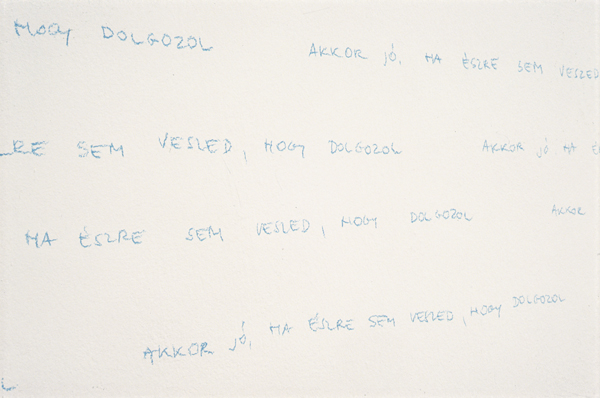 HOGY DOLGOZOL AKKOR JÓ, HA ÉSZRE SEM VESZED
RE SEM VESZED, HOGY DOLGOZOL AKKOR JÓ HA É
HA ÉSZRE SEM VESZED, HOGY DOLGOZOL AKKOR
AKKOR JÓ, HA ÉSZRE SEM VESZED, HOGY DOLGOZOL